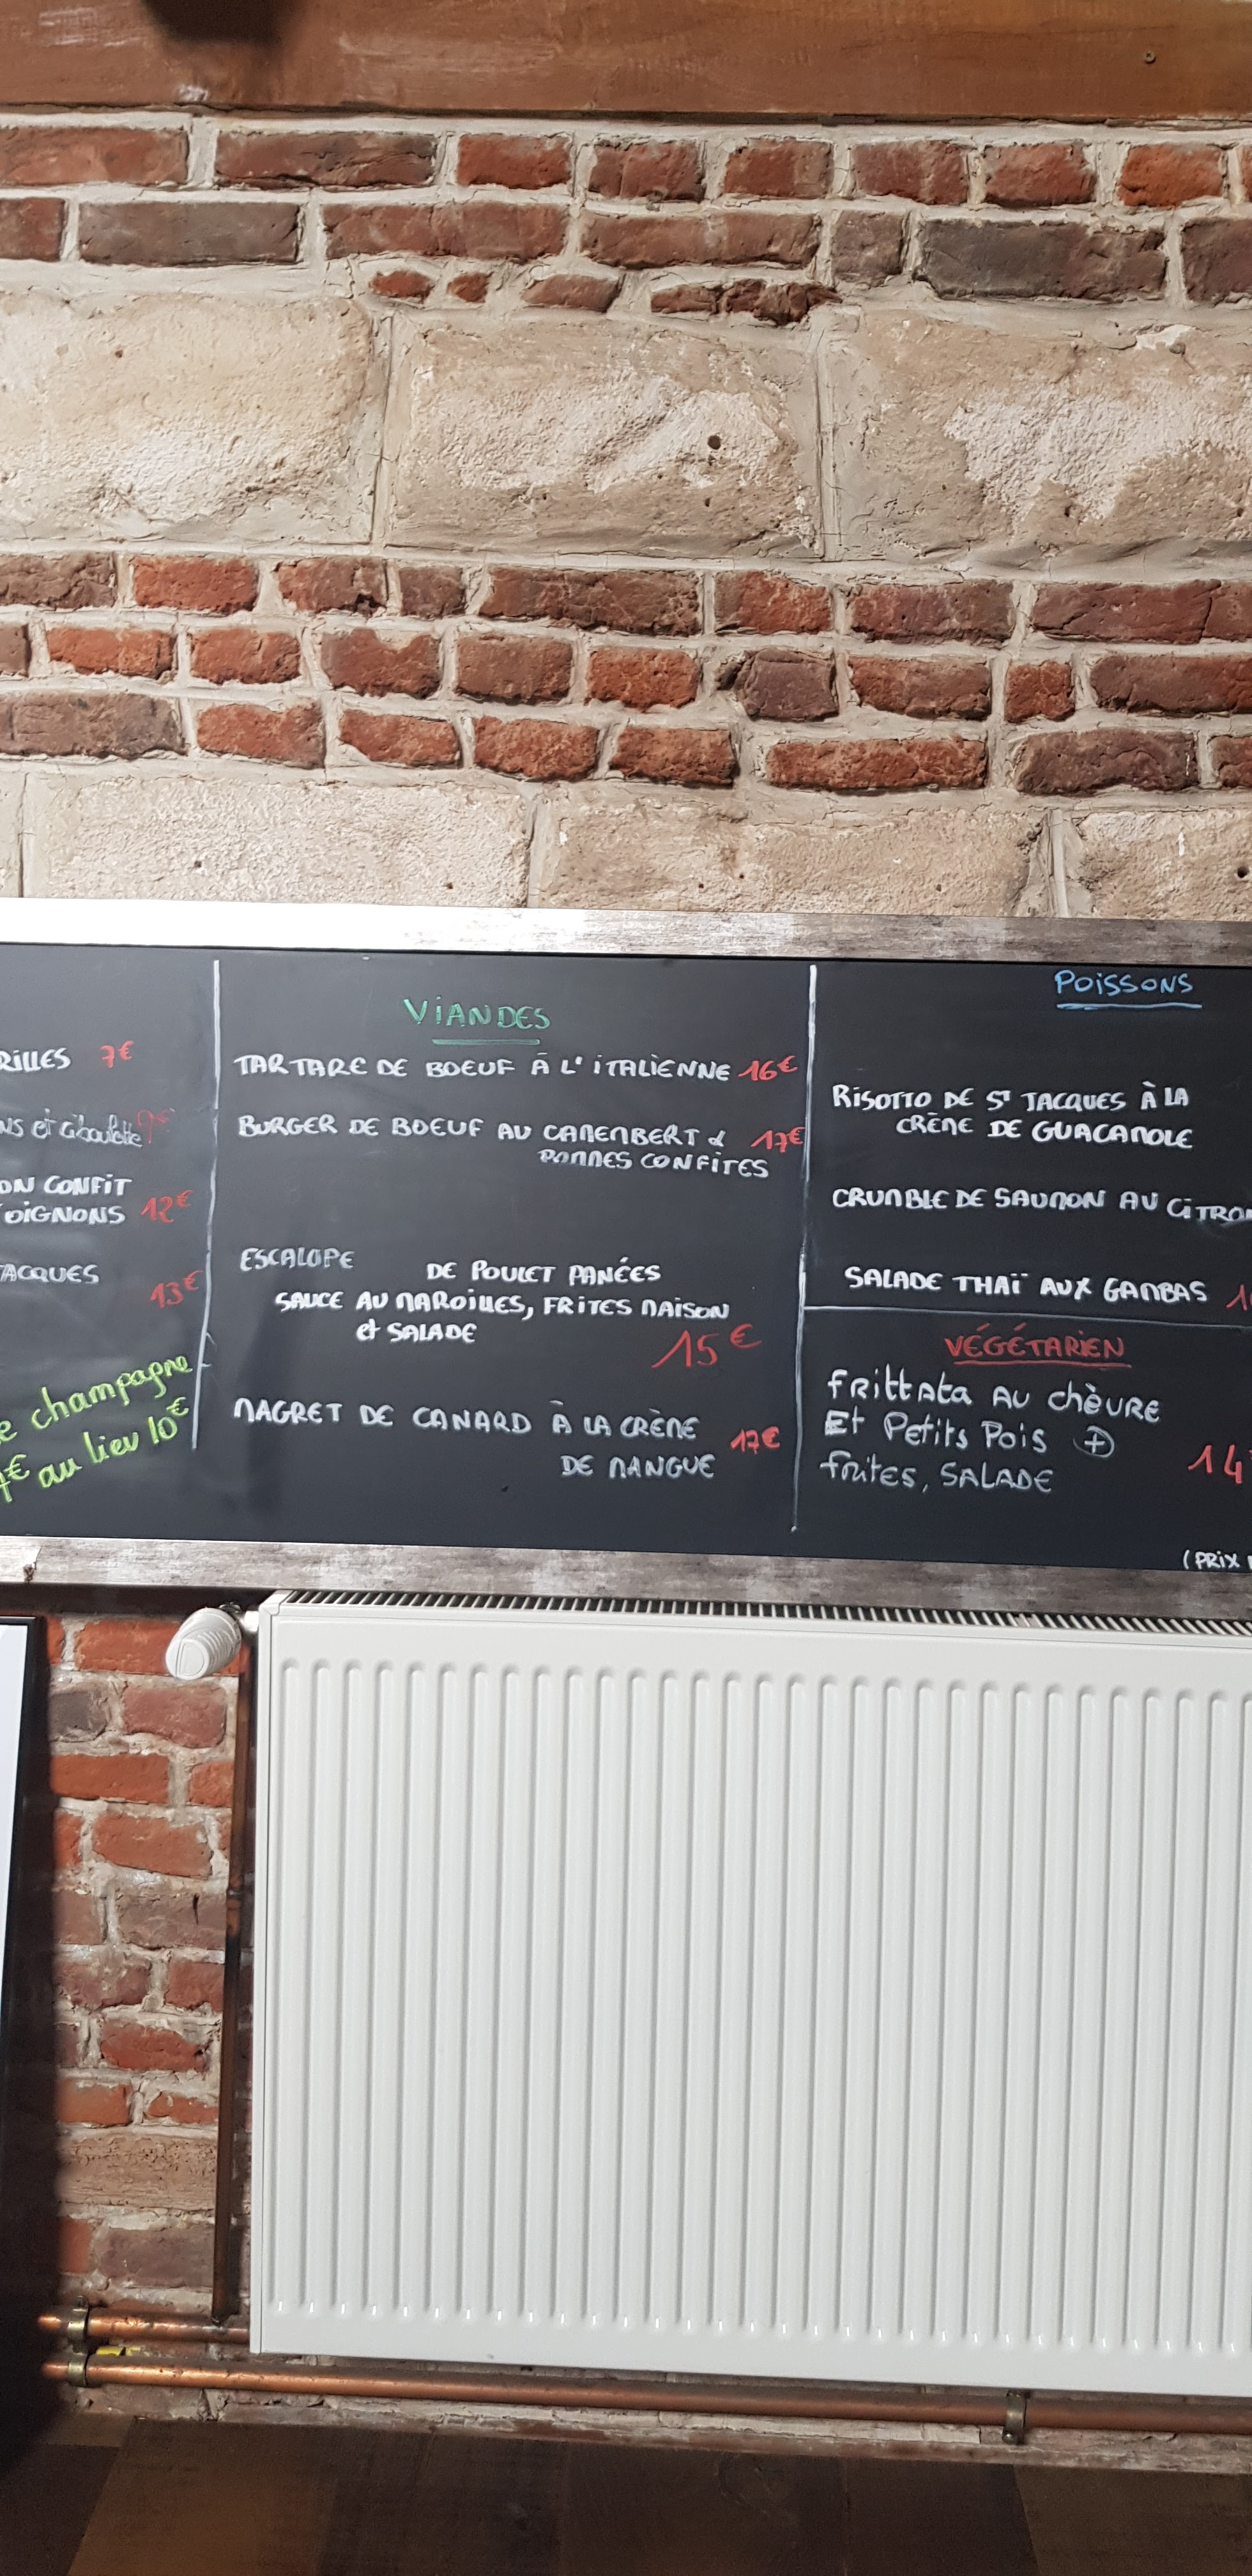 7€
et ciboulette 9€
CONFIT
OIGNONS 12€
13€
champagne
au lieu 10€
VIANDES
TARTARE DE BOEUF À L'ITALIENNE 16€
BURGER DE BOEUF AU CAMEMBERT & 17€
POMMES CONFITES
ESCALOPE DE POULET PANÉES
SAUCE AU MAROILLES, FRITES MAISON
et SALADE
15€
MAGRET DE CANARD À LA CRÈME 17€
DE MANGUE
POISSONS
RISOTTO DE ST JACQUES À LA
CRÈME DE GUACAMOLE
CRUMBLE DE SAUMON AU CITRON
SALADE THAÏ AUX GAMBAS
VÉGÉTARIEN
FRittAta AU chèVRE
Et Petits Pois +
frites, SALADE
14
(PRIX